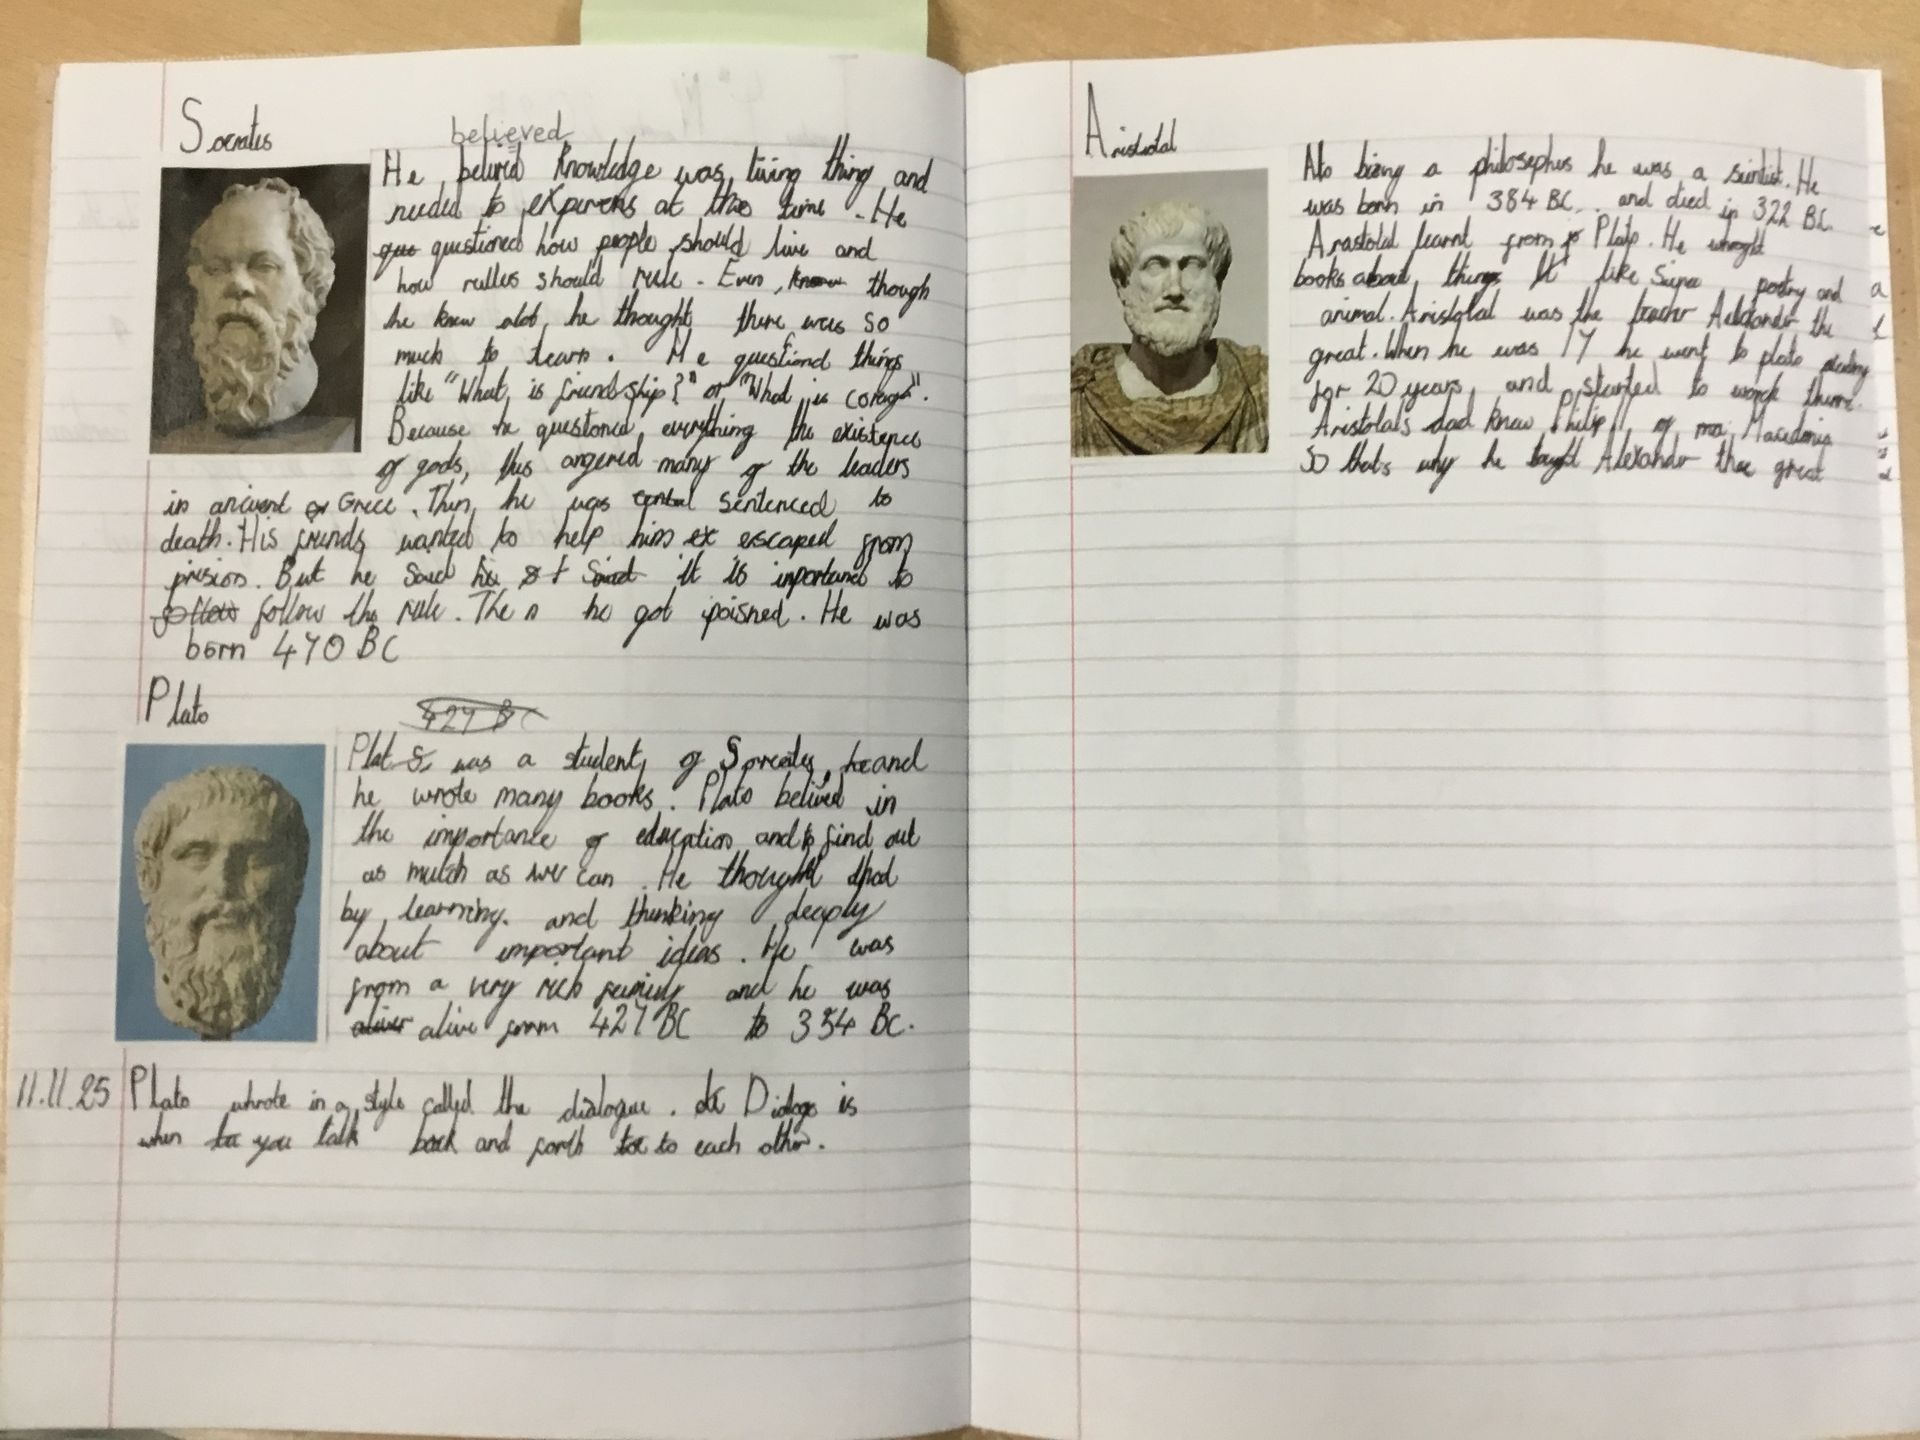 Socrates
believed
He belived knowledge was living thing and
needed to experens at this time. He
que questioned how people should live and
how rulles should rule. Even, know though
he knew alot, he thought there was so
much to learn. He questiond things
like "What is friendship?" or "What is corage".
Because he questoned everything the existence
of gods, this angered many of the leaders
in ancient Grece. Then, he was sentenced to
death. His frends wanted to help him ex escaped from
prision. But he said it is inportand to
follow follow the rule. Then he got poisned. He was
born 470 BC
Plato
427 BC
Plat S was a student of Socreates, he and
he wrote many books. Plato belived in
the importance of education and to find out
as mutch as we can. He thought thad
by learning. and thinking deeply
about important ideas. He was
from a very rich famiuy and he was
aliver alive from 427 BC to 354 BC.
11.11.25
Plato whrote in a style called the dialogue. Dialogo is
when you talk back and forth to each other.
Aristotal
Also being a philosephus he was a sientist. He
was born in 384 BC. and died in 322 BC.
Arastotal learnt from Plato. He wroght
books about things like Siense poetry and
animal. Aristotal was the teacher Alexander the
great. When he was 17 he went to plato acadmy
for 20 years, and started to worck there.
Aristotals dad knew Philip II of ma Macedonia
so thats why he taught Alexander the great